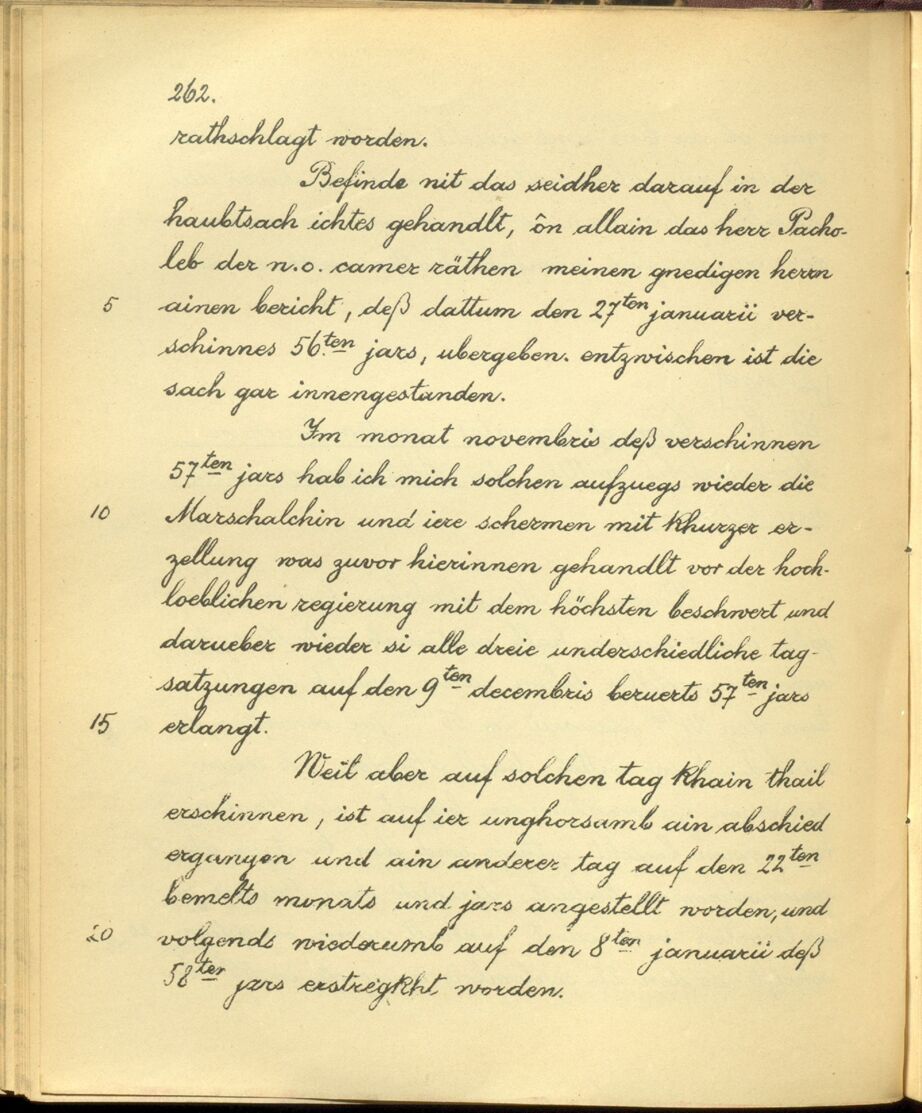 262.
rathschlagt worden.
Befinde nit das seidher darauf in der
haubtsach ichtes gehandlt, ôn allain das herr Pacho-
leb der n.o. camer räthen meinen gnedigen herrn
5 ainen bericht, deß dattum den 27ten januarii ver-
schinnes 56.ten jars, ubergeben. entzwischen ist die
sach gar innengestanden.
Im monat novembris deß verschinnen
57ten jars hab ich mich solchen aufzuegs wieder die
10 Marschalchin und iere schermen mit khurzer er-
zellung was zuvor hierinnen gehandlt vor der hoch-
loeblichen regierung mit dem höchsten beschwert und
darueber wieder si alle dreie underschiedliche tag-
satzungen auf den 9ten decembris beruerts 57ten jars
15 erlangt.
Weil aber auf solchen tag khain thail
erschinnen, ist auf ier unghorsamb ain abschied
ergangen und ain anderer tag auf den 22ten
bemelts monats und jars angestellt worden, und
20 volgends wiederumb auf den 8ten januarii deß
58ten jars erstregkht worden.